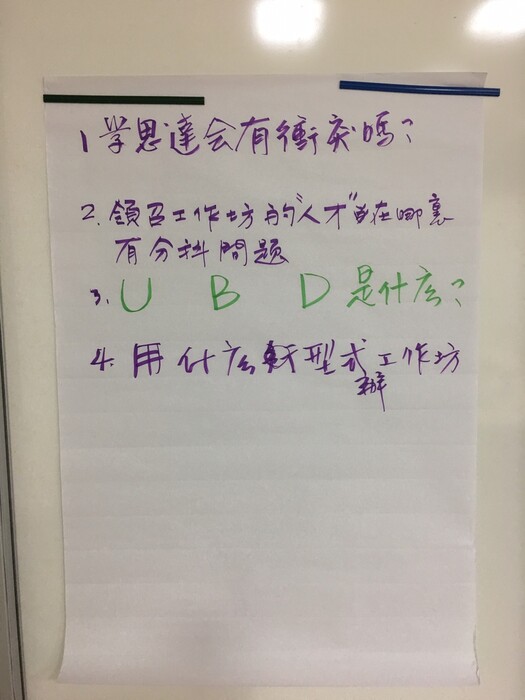 1 学思達会有衝突嗎?
2. 領召工作坊的"人才"在哪裏
有分抖問題
3. U B D 是什么?
4. 用什么型式工作坊
辦